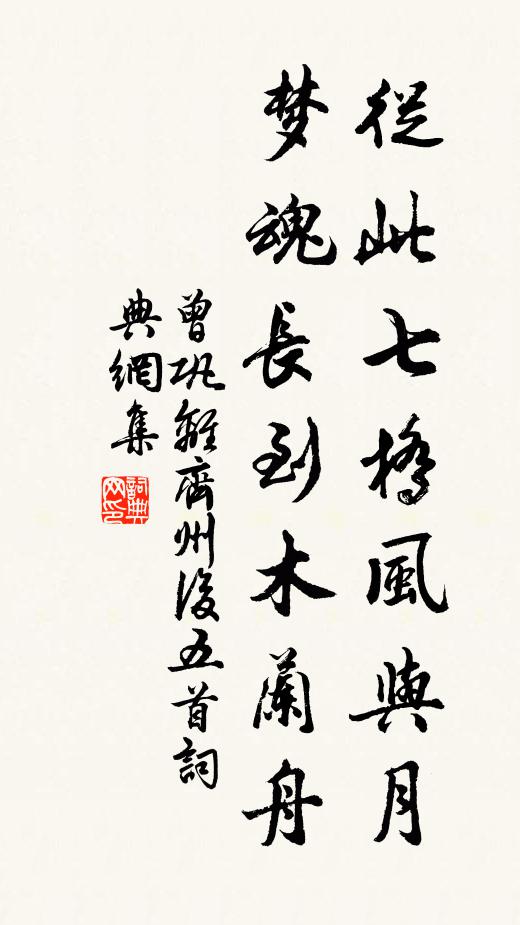 從此七橋風與月
梦魂長到木蘭舟
曾巩離齊州後五首詞
典網集
詞典网印